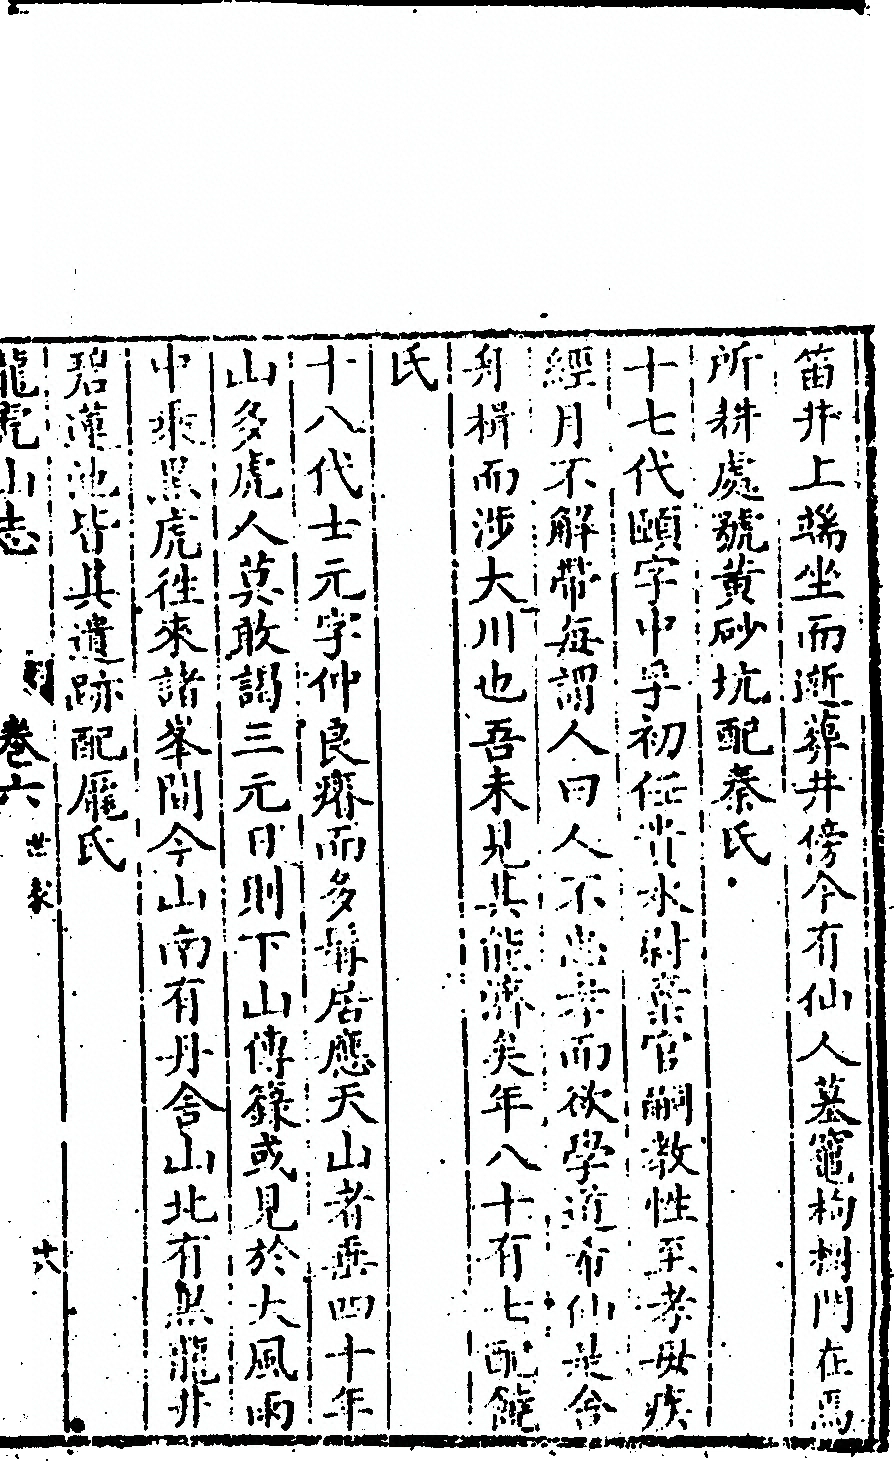 笛井上端坐而逝葬井傍今有仙人墓竈枸橘門在焉
所耕處號黄砂坑配秦氏
十七代頤字中孚初任貴水尉棄官嗣教性至孝母疾
經月不解帶每謂人曰人不忠孝而欲學道希仙是舍
舟楫而涉大川也吾未見其能濟矣年八十有七配饒
氏
十八代士元字仲良瘠而多髯居應天山者垂四十年
山多虎人莫敢謁三元日則下山傳籙或見於大風雨
中乘黑虎徃來諸峯間今山南有丹舍山北有黑龍井
碧蓮池皆其遺跡配龎氏
龍虎山志 卷六 世家 十八